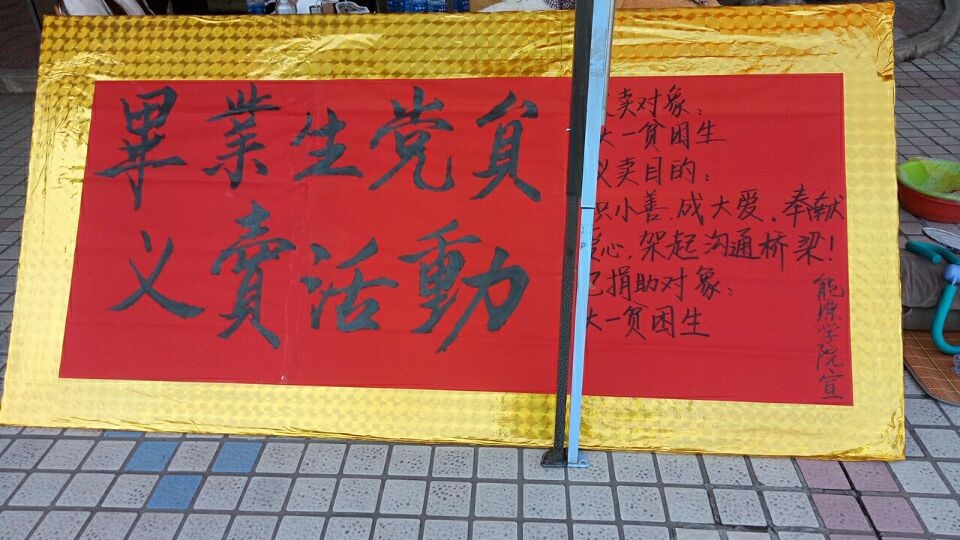 畢業生党員
义賣活動
义卖对象：
大一贫困生
义卖目的：
积小善.成大爱.奉献
爱心,架起沟通桥梁!
已捐助对象：
大一贫困生
能源学院宣